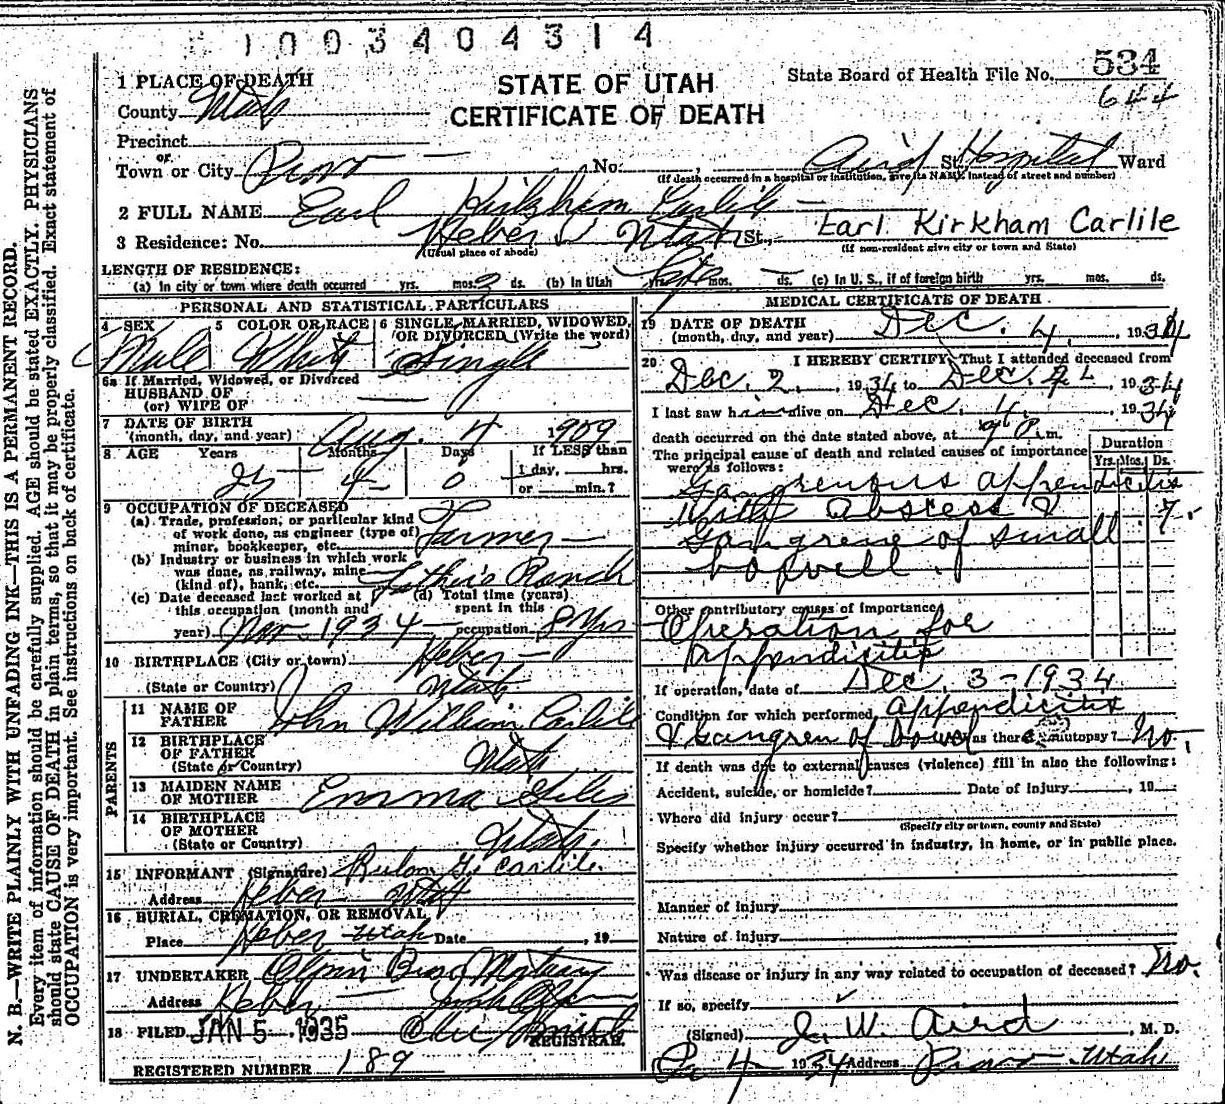 1003404314
1 PLACE OF DEATH
STATE OF UTAH
CERTIFICATE OF DEATH
State Board of Health File No. 534
644
County Utah
Precinct
Town or City Provo No. Aird Hospital St. Ward
(If death occurred in a hospital or institution, give its NAME instead of street and number)
2 FULL NAME Earl Kirkham Carlile
Earl Kirkham Carlile
3 Residence: No. Heber Utah St.,
(Usual place of abode) (If non-resident give city or town and State)
LENGTH OF RESIDENCE:
(a) In city or town where death occurred yrs. mos. 2 ds. (b) In Utah Life yrs. mos. ds. (c) In U. S., if of foreign birth yrs. mos. ds.
PERSONAL AND STATISTICAL PARTICULARS
4 SEX Male
5 COLOR OR RACE White
6 SINGLE, MARRIED, WIDOWED, OR DIVORCED (Write the word) Single
6a If Married, Widowed, or Divorced
HUSBAND OF
(or) WIFE OF
7 DATE OF BIRTH
(month, day, and year) Aug. 4 1909
8 AGE Years Months Days If LESS than
25 4 0 1 day, hrs.
or min.?
9 OCCUPATION OF DECEASED
(a) Trade, profession, or particular kind
of work done, as engineer (type of)
miner, bookkeeper, etc. Farmer
(b) Industry or business in which work
was done, as railway, mine
(kind of), bank, etc. Father's Ranch
(c) Date deceased last worked at
this occupation (month and
year) Nov. 1934
(d) Total time (years)
spent in this
occupation 8 yrs
10 BIRTHPLACE (City or town) Heber
(State or Country) Utah
PARENTS
11 NAME OF
FATHER John William Carlile
12 BIRTHPLACE
OF FATHER
(State or Country) Utah
13 MAIDEN NAME
OF MOTHER Emma Giles
14 BIRTHPLACE
OF MOTHER
(State or Country) Utah
15 INFORMANT (Signature) Rulon G. Carlile
Address Heber Utah
16 BURIAL, CREMATION, OR REMOVAL
Place Heber Utah Date , 19
17 UNDERTAKER Olpin Bros Mortuary
Address Heber
18 FILED JAN 5 1935
REGISTRAR.
REGISTERED NUMBER 189
MEDICAL CERTIFICATE OF DEATH
19 DATE OF DEATH
(month, day, and year) Dec. 4, 1934
20 I HEREBY CERTIFY, That I attended deceased from
Dec. 2, 1934 to Dec. 4, 1934
I last saw him alive on Dec. 4, 1934
death occurred on the date stated above, at 9 P. m.
The principal cause of death and related causes of importance
were as follows:
Duration
Yrs. Mos. Ds.
Gangrenous appendicitis
with abscess & 7.
Gangrene of small
bowell.
Other contributory causes of importance
Operation for
appendicitis
If operation, date of Dec. 3-1934
Condition for which performed Appendicitis
& Gangren of bowel was there autopsy? No.
If death was due to external causes (violence) fill in also the following:
Accident, suicide, or homicide? Date of Injury , 19
Where did injury occur?
(Specify city or town, county and State)
Specify whether injury occurred in industry, in home, or in public place.
Manner of injury
Nature of injury
Was disease or injury in any way related to occupation of deceased? No.
If so, specify
(Signed) J. W. Aird , M. D.
4 1934 Address Provo Utah
N. B.—WRITE PLAINLY WITH UNFADING INK—THIS IS A PERMANENT RECORD.
Every item of information should be carefully supplied. AGE should be stated EXACTLY. PHYSICIANS
should state CAUSE OF DEATH in plain terms, so that it may be properly classified. Exact statement of
OCCUPATION is very important. See instructions on back of certificate.